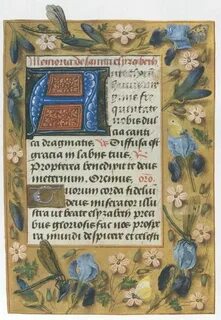 Memoria de sancta elyzabeth
nobis dul
ca canti
ca dragmatis. Diffusa est
gracia in labijs tuis.
Propterea benedixit te deus
in eternum. Oremus. oro.
Tuorum corda fidelium
deus miserator illu
stra ut beate elyzabeth prea
bus gloriosis fac nos prospe
ra mundi despicere et celesti